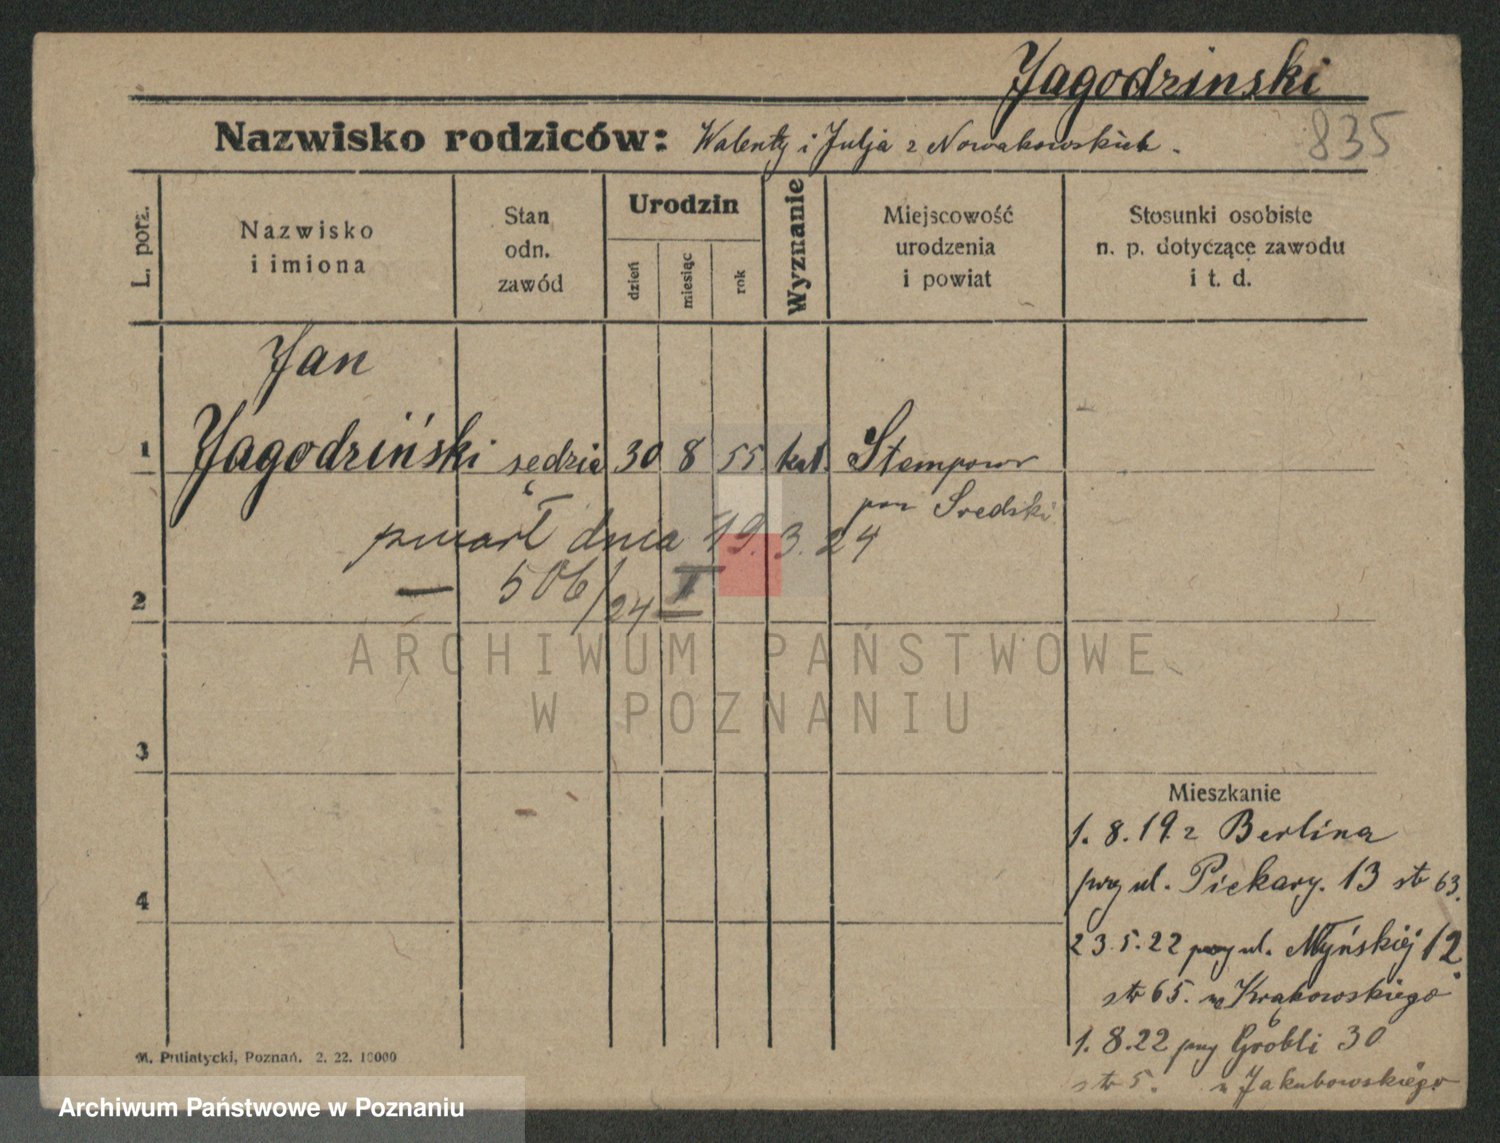 Jagodzinski
835
Nazwisko rodziców: Walenty i Julja z Nowakowskich.
L. porz.
Nazwisko
i imiona
Stan
odn.
zawód
Urodzin
dzień
miesiąc
rok
Wyznanie
Miejscowość
urodzenia
i powiat
Stosunki osobiste
n. p. dotyczące zawodu
i t. d.
Jan
1 Jagodziński sędzia 30 8 55 kat.
pow Średski
dnia 19.3.24
2 506/24 II
ARCHIWUM PAŃSTWOWE
W POZNANIU
3
Mieszkanie
1.8.19 z Berlina
przy ul. Piekary. 13 str 63.
4
23.5.22 przy ul. Młyńskiej 12.
str 65. u Krąkowskiego
1.8.22 przy Grobli 30
str 5. u Jakubowskiego
M. Putiatycki, Poznań. 2. 22. 10000
Archiwum Państwowe w Poznaniu